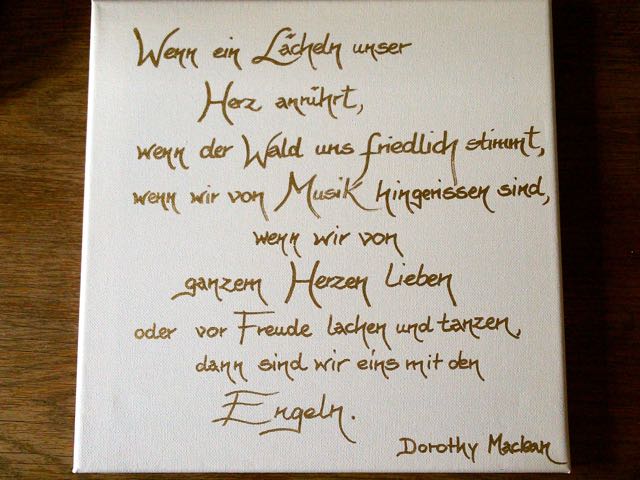 Wenn ein Lächeln unser
Herz anrührt,
wenn der Wald uns friedlich stimmt,
wenn wir von Musik hingerissen sind,
wenn wir von
ganzem Herzen Lieben
oder vor Freude lachen und tanzen,
dann sind wir eins mit den
Engeln.
Dorothy Maclean